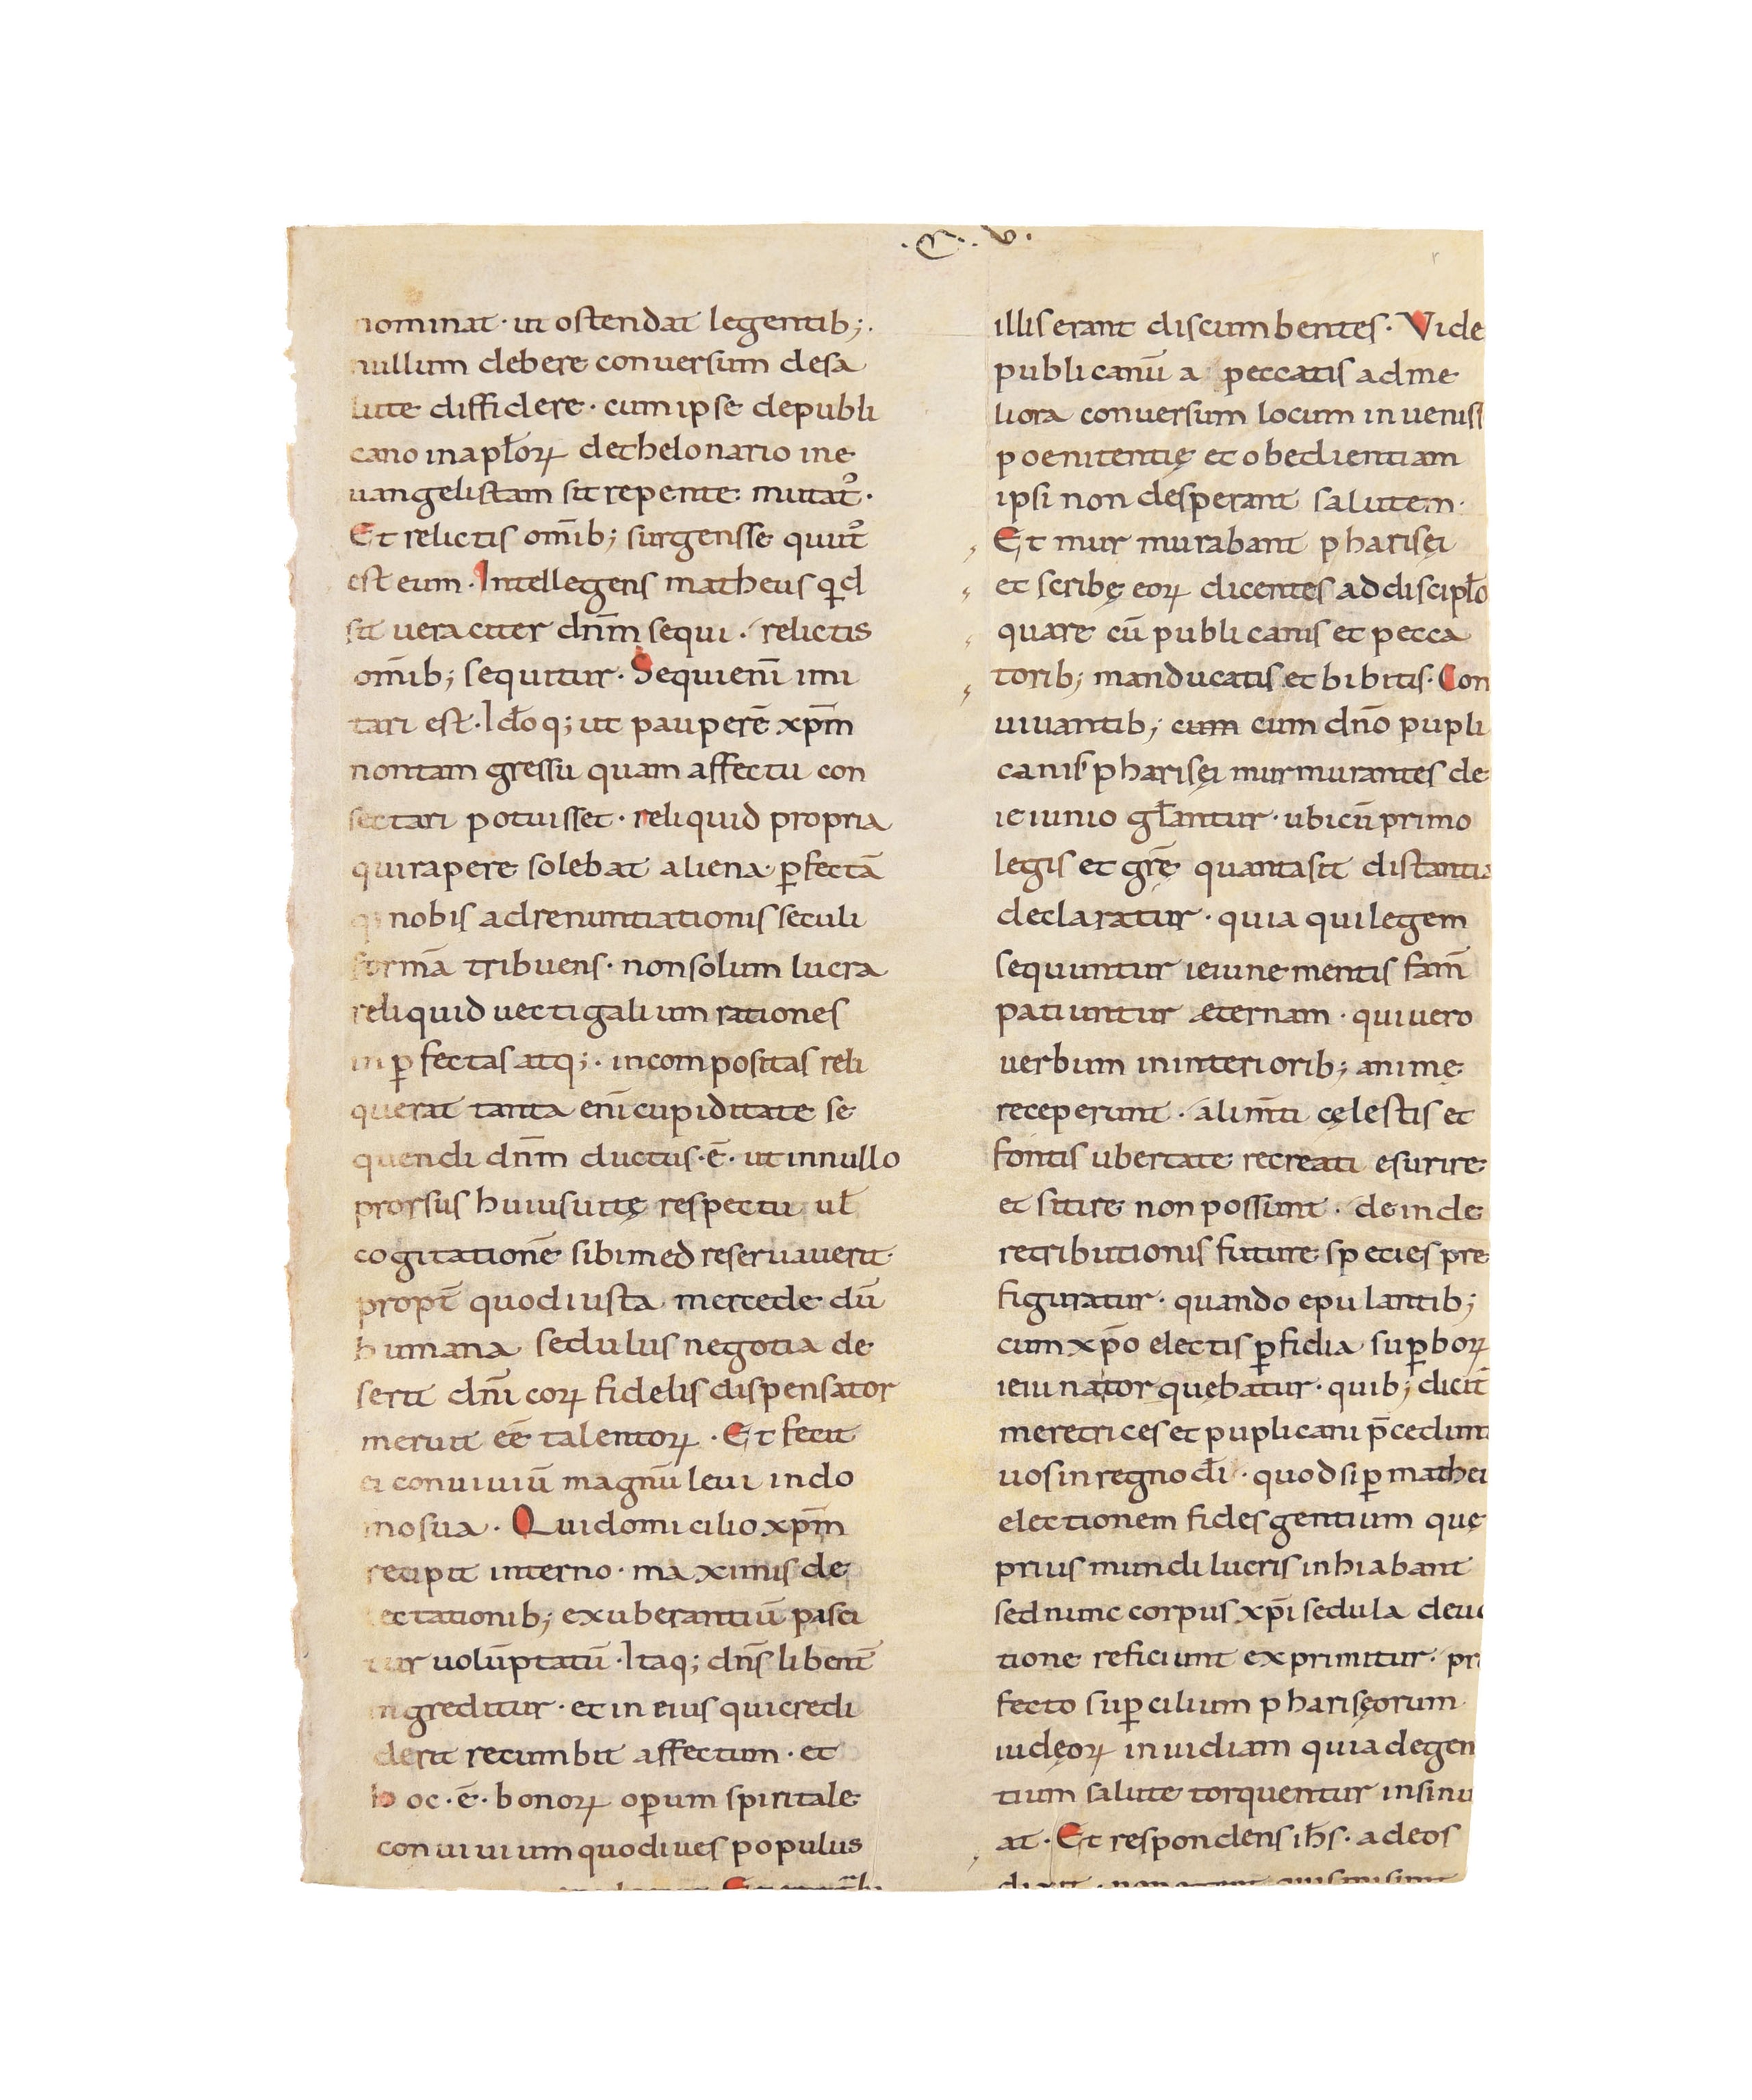 nominat · ut ostendat legentib;.
nullum debere conuersum desa
lute diffidere · cum ipse depubli
cano inapl̄oꝝ dethelonario ine
uangelistam sit repente mutat᷒ ·
Et relictis om̄ib; surgensse quut᷒
est eum · Intellegens matheus qd
sit ueraciter dn̄m sequi · relictis
om̄ib; sequitur · Sequienī imi
tari est · Idoq; ut pauperē xp̄m
nontam gressu quam affectu con
sectari potuisset · reliquid propria
quirapere solebat aliena · ꝑfectā
qi nobis adrenuntiationis seculi
formā tribuens · nonsolum lucra
reliquid uectigalium rationes
inꝑfectas atq;· incompositas reli
querat tanta enī cupiditate se
quendi dn̄m ductus · ē · ut innullo
prorsus huiusuitę respectu ul̄
cogitationē sibimed reseruauerit ·
propt̄ quodiusta mercede dū
humana sedulus negotia de
serit dn̄icoꝝ fidelis dispensator
meruit eē talentoꝝ · Et fecit
ei conuiuiū magnū leui indo
mosua · Qui domicilio xp̄m
recipit interno · maximis de
lectationib; exuberantiū pasci
tur uolūptatū · Itaq; dn̄s libent̄
ingreditur · et in eius quicredi
derit recumbit affectum · et
hoc · ē · bonoꝝ oꝑum spiritale
conuiuium quodiues populus
·C· v·
illis erant discumbentes · Vide
publicanū a peccatis adme
liora conuersum locum inueniss
poenitentię et obedientiam
ipsi non desperant salutem ·
Et murmurabant pharisęi
et scribę eoꝝ dicentes addiscipl̄o
quare cū publicanis et pecca
torib; manducatis et bibitis · Con
uiuantib; cum cum dn̄o pupli
canis pharisęi murmurantes de
ieiunio gl̄antur · ubicū primo
legis et grę̄ quantasit distantia
declaratur · quia quilegem
sequuntur ieiune mentis fam̄
patiuntur æternam · quiuero
uerbum ininteriorib; animę
receperunt · alim̄ti cęlestis et
fontis ubertate recreati esurire
et sitire non possunt · deinde
retributionis future species pre
figuratur · quando epulantib;
cum xp̄o electis ꝑfidia suꝑboꝝ
ieiunator quębatur · quib; dicit
meretrices et puplicani p̄cedunt
uos in regno dī · quod si ꝑ mathei
electionem fides gentium quę
prius mundi lucris inhiabant
sed nunc corpus xp̄i sedula deuo
tione reficiunt exprimitur · pro
fecto suꝑcilium pharisęorum
iudęoꝝ inuidiam quia degen
tium salute torquentur insinu
at · Et respondens ih̄s · adeos